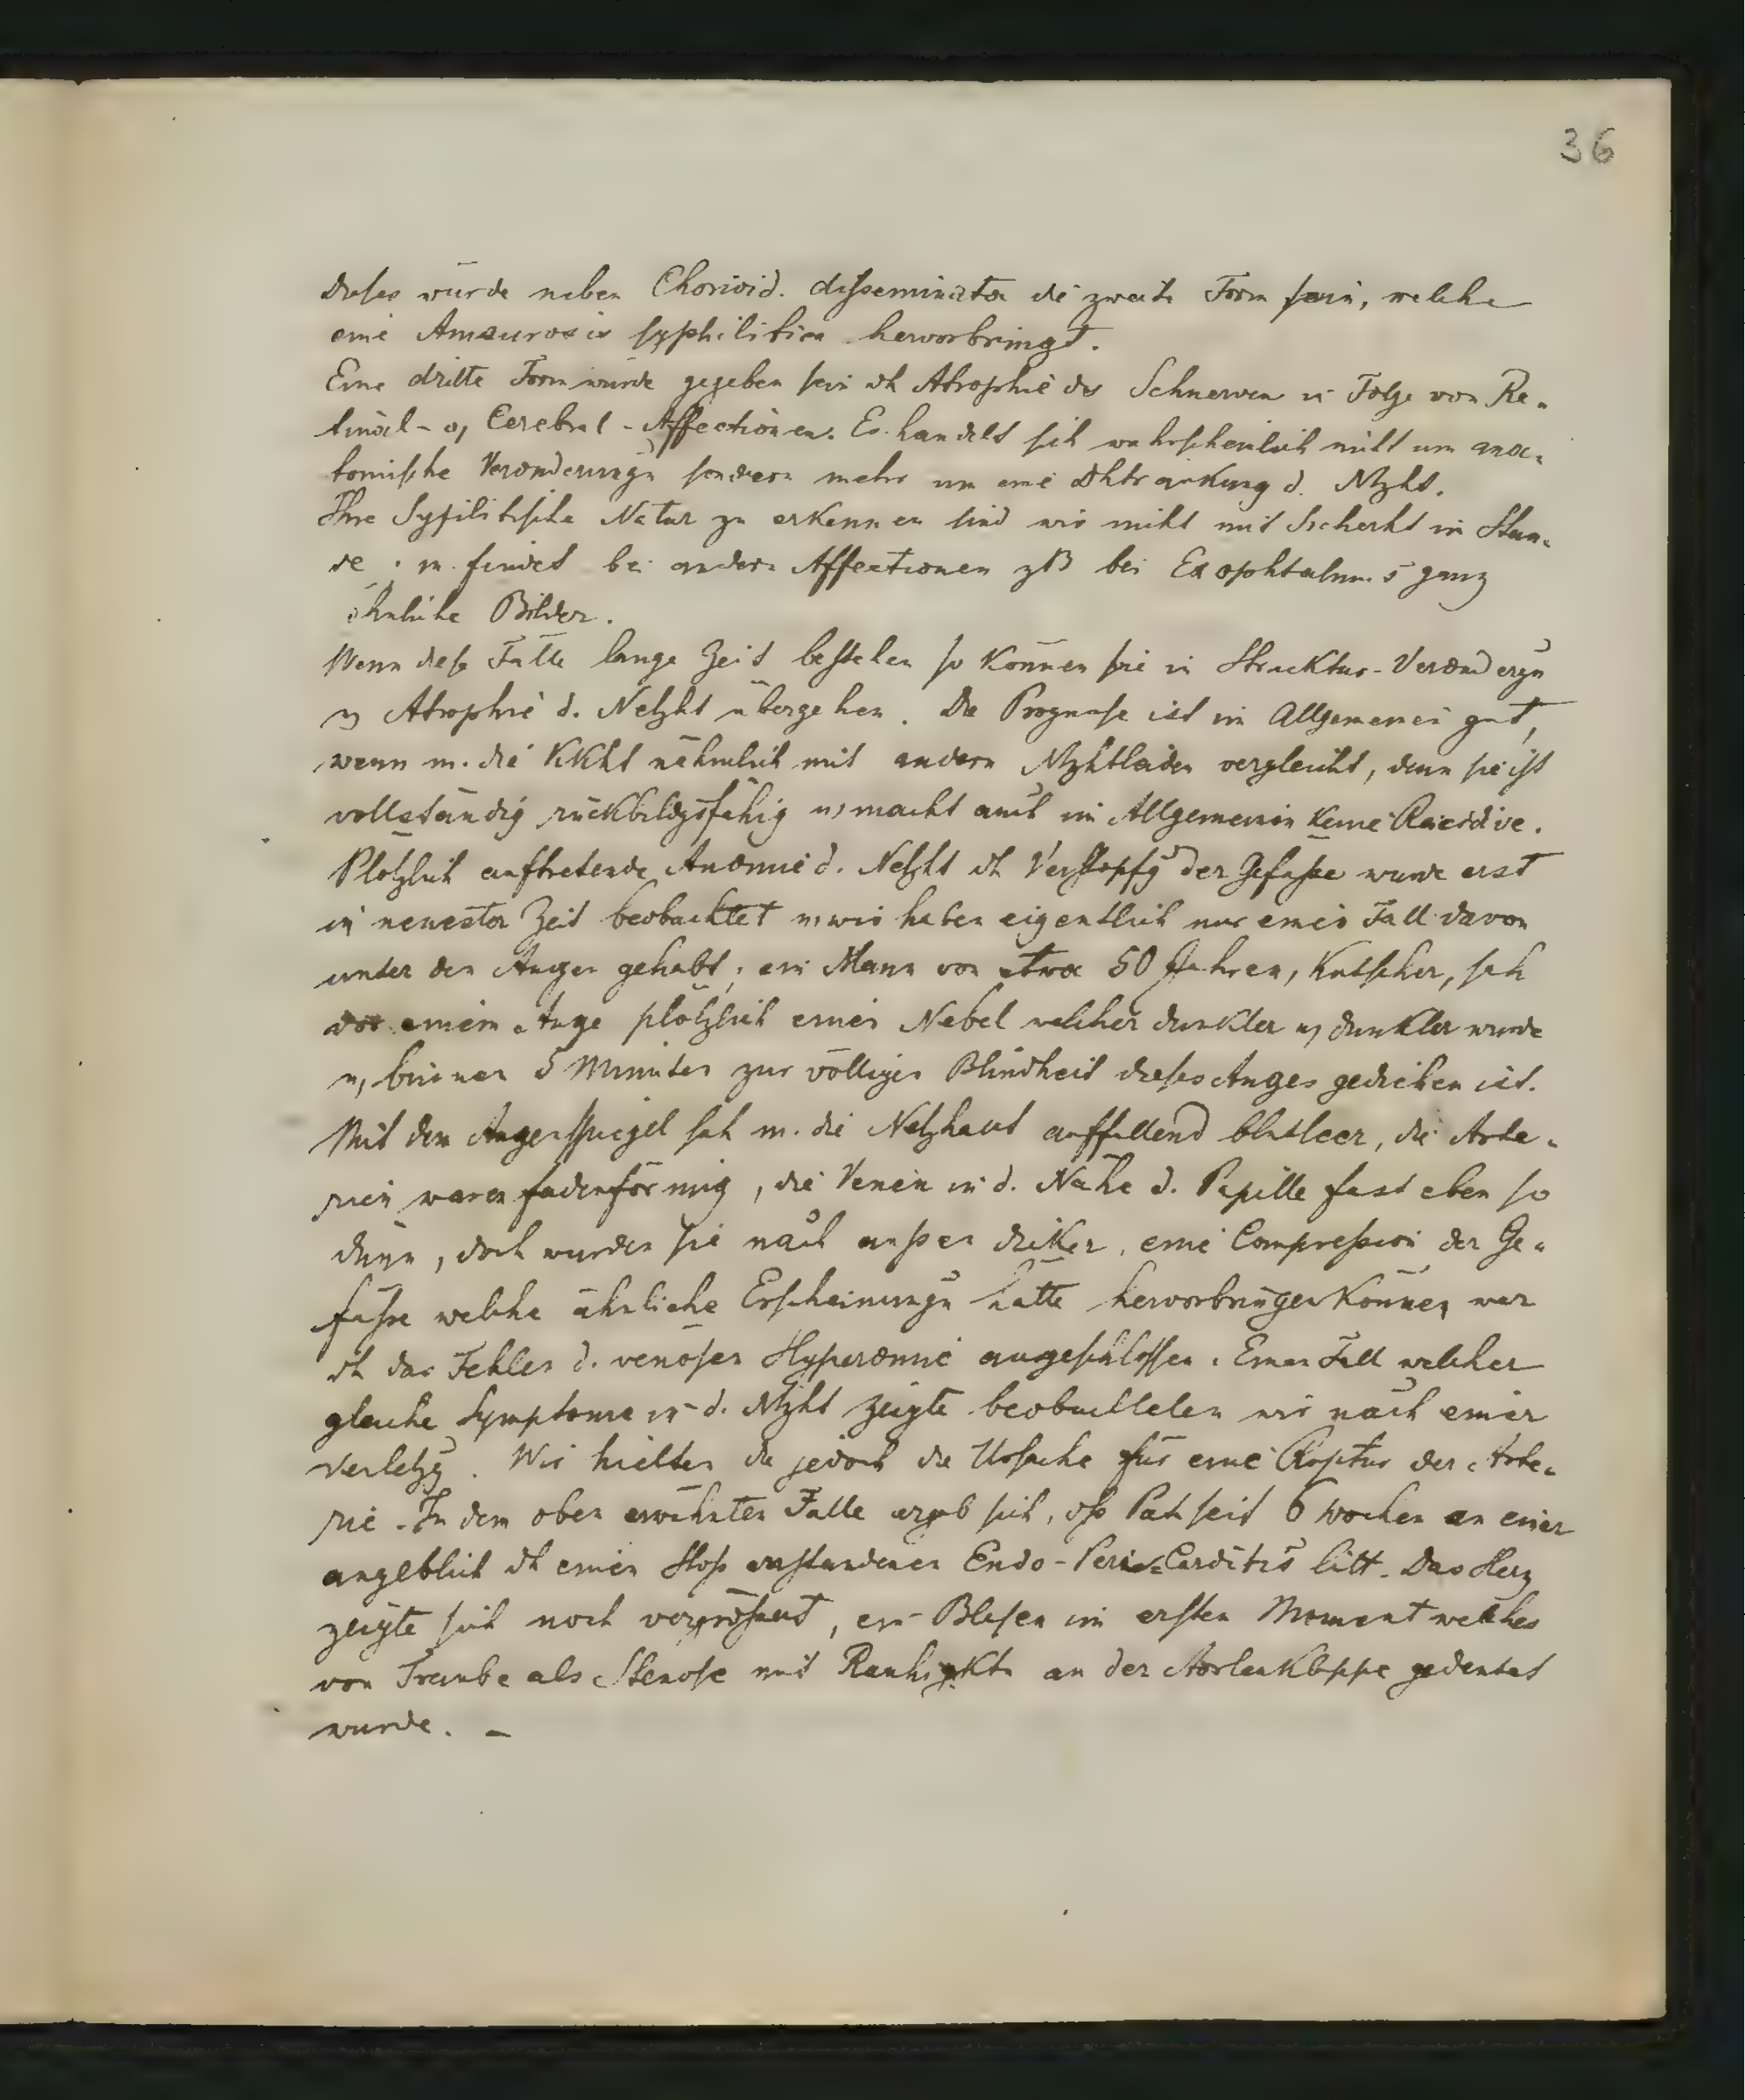 36
Dieses würde neben Chorioid. disseminata die zweite Form sein, welche
eine Amaurosis syphilitica hervorbringt.
Eine dritte Form würde gegeben sein dh Atrophie des Sehnerven in Folge von Re-
tinal- od Cerebral-Affectionen. Es handelt sich wahrscheinlich nicht um ana-
tomische Veränderungn sondern mehr um eine dhtränkung d. Ntzht.
Ihre Syfilitische Natur zu erkennen sind wir nicht mit Sicherht im Stan-
de; m. findet bei andern Affectionen zB bei Exophtalmus ganz
ähnliche Bilder.
Wenn diese Fälle lange Zeit bestehen so können sie in Strucktur-Verändergn
u Atrophie d. Netzht übergehen. Die Prognose ist im Allgemeinen gut,
wenn m. die Kkht nähmlich mit andern Ntzhtleiden vergleicht, denn sie ist
vollständig rückbildgsfähig u macht auch im Allgemeinen keine Recidive.
Plötzlich auftretende Anämie d. Netzht dh Verstopfg der Gefässe wurde erst
in neuester Zeit beobachtet u wir haben eigentlich nur einen Fall davon
unter den Augen gehabt; ein Mann von etwa 50 Jahren, Kutscher, sah
vor einem Auge plötzlich einen Nebel welcher dunkler u dunkler wurde
u binnen 5 Minuten zur völligen Blindheit dieses Auges gediehen ist.
Mit dem Augenspiegel sah m. die Netzhaut auffallend blutleer, die Arte-
rien waren fadenförmig, die Venen in d. Nähe d. Papille fast eben so
dünn, doch wurden sie nach aussen dicker, eine Compression der Ge-
fässe welche ähnliche Erscheinungn hätte hervorbringen können war
dh das Fehlen d. venösen Hyperämie ausgeschlossen. Einen Fall welcher
gleiche Symptome in d. Ntzht zeigte beobachteten wir nach einer
Verletzg. Wir hielten da jedoch die Ursache für eine Ruptur der Arte-
rie. In dem oben erwähnten Falle ergab sich, dß Pat seit 6 Wochen an einer
angeblich dh einen Stoß enstandenen Endo-Peri-Carditis litt. Das Herz
zeigte sich noch vergrössert, ein Blasen im ersten Moment welches
von Traube als Stenose mit Rauhigktn an der Aortenklappe gedeutet
wurde. –